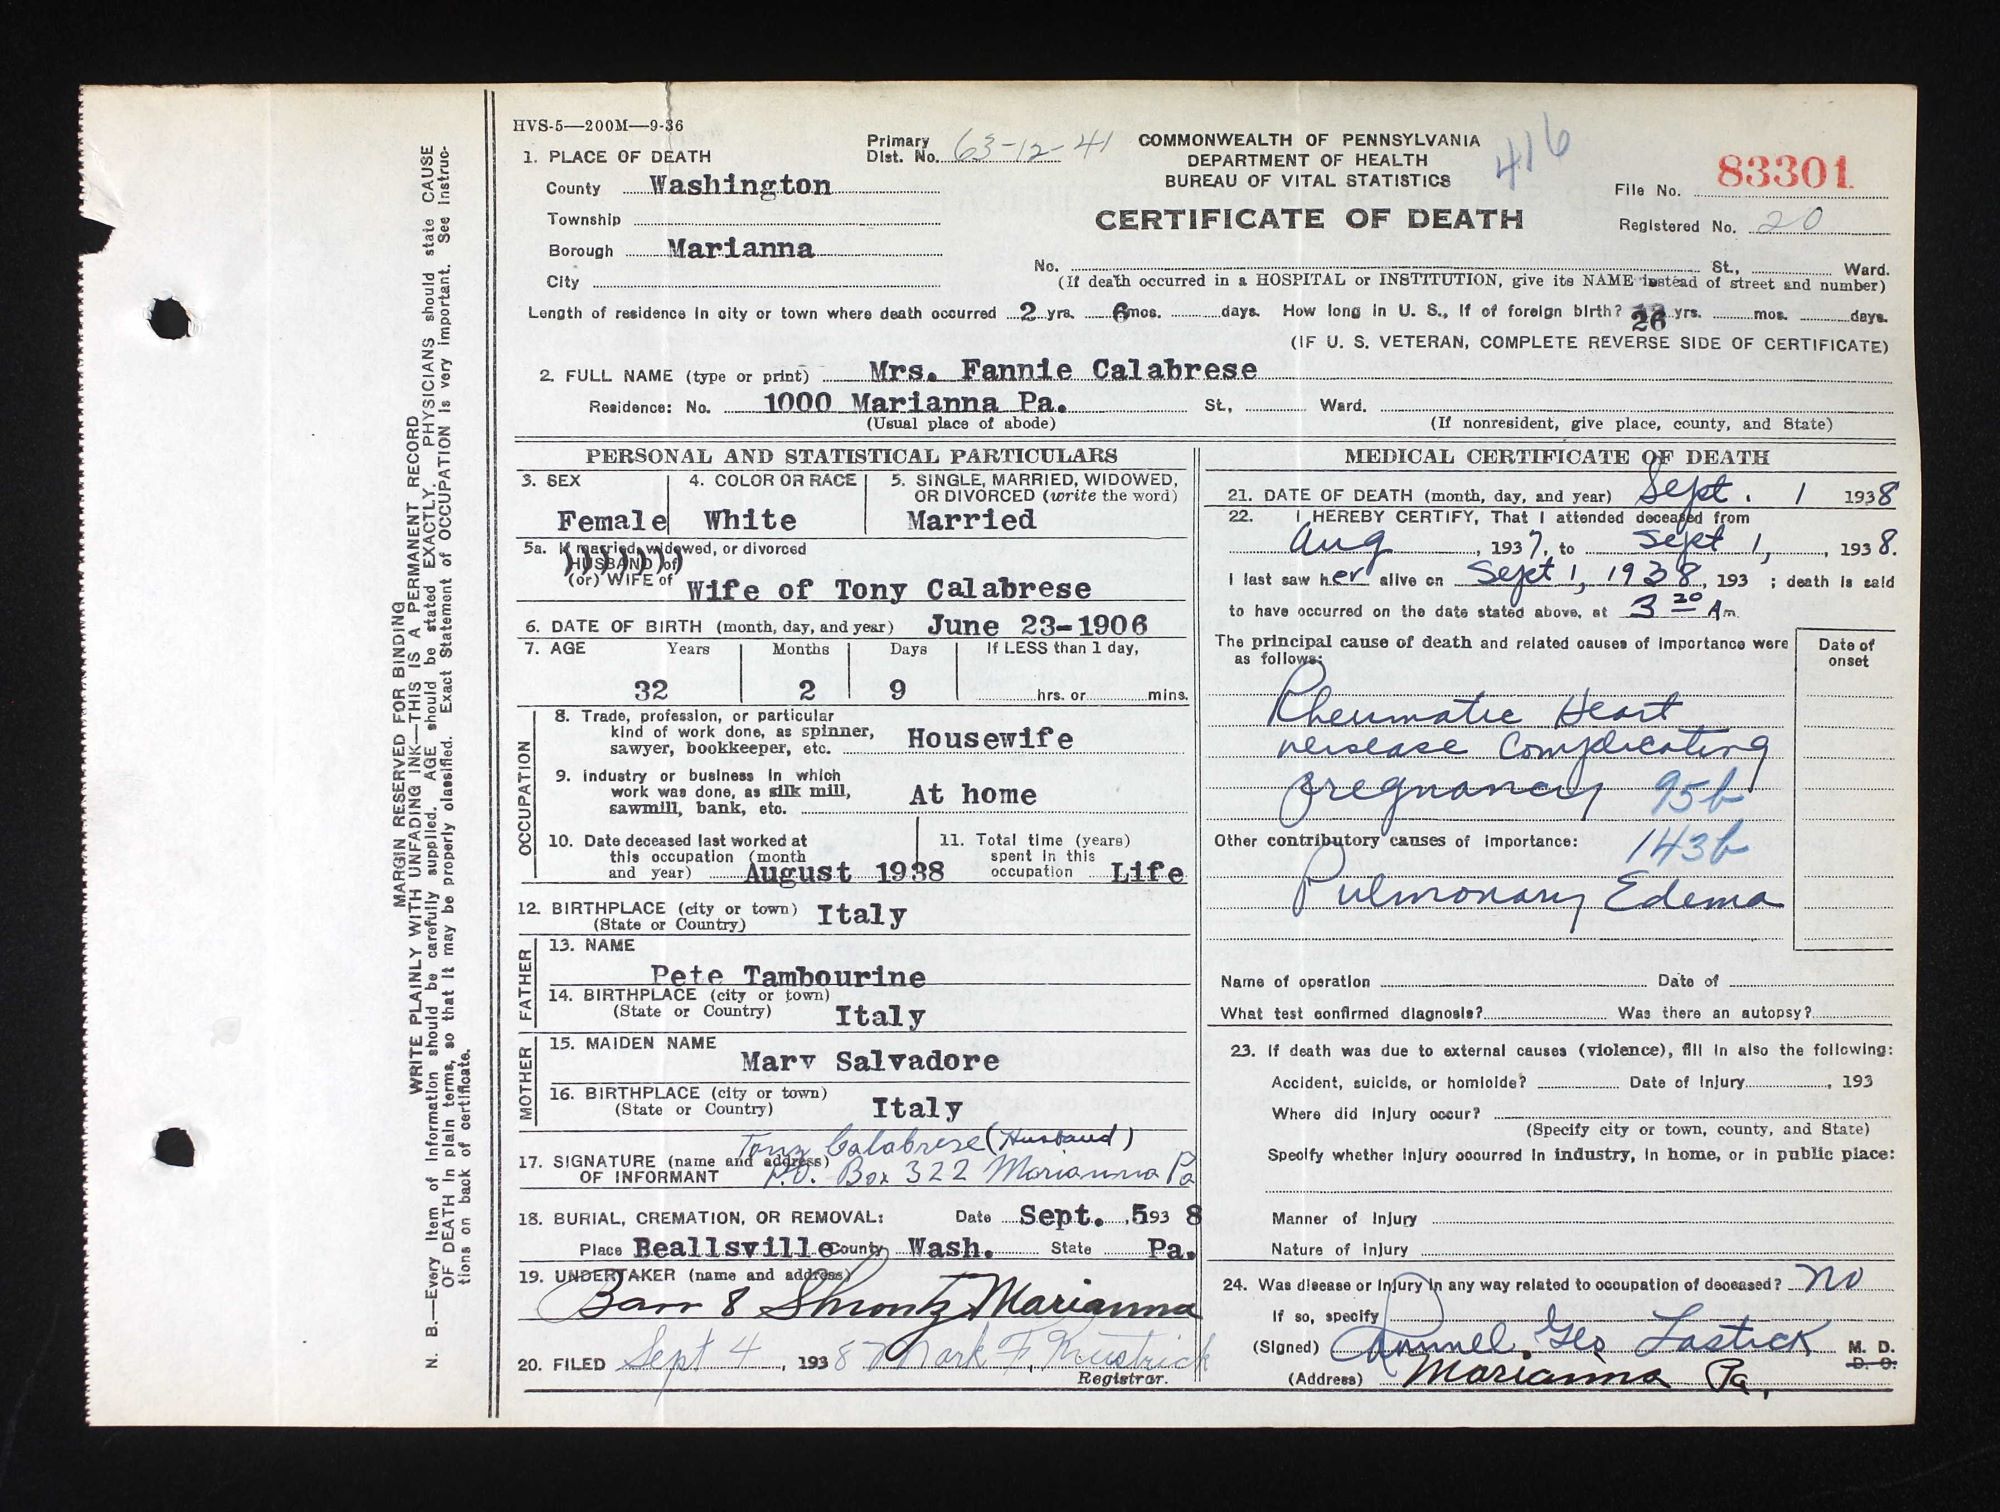 HVS-5—200M—9-36
1. PLACE OF DEATH
County Washington
Township
Borough Marianna
City
Primary
Dist. No. 63-12-41
COMMONWEALTH OF PENNSYLVANIA
DEPARTMENT OF HEALTH
BUREAU OF VITAL STATISTICS
CERTIFICATE OF DEATH
416
File No. 83301
Registered No. 20
No. St., Ward.
(If death occurred in a HOSPITAL or INSTITUTION, give its NAME instead of street and number)
Length of residence in city or town where death occurred 2 yrs. 6 mos. days. How long in U. S., if of foreign birth? 26 yrs. mos. days.
(IF U. S. VETERAN, COMPLETE REVERSE SIDE OF CERTIFICATE)
2. FULL NAME (type or print) Mrs. Fannie Calabrese
Residence: No. 1000 Marianna Pa. St., Ward.
(Usual place of abode) (If nonresident, give place, county, and State)
PERSONAL AND STATISTICAL PARTICULARS
3. SEX
Female
4. COLOR OR RACE
White
5. SINGLE, MARRIED, WIDOWED,
OR DIVORCED (write the word)
Married
5a. If married, widowed, or divorced
HUSBAND of
(or) WIFE of Wife of Tony Calabrese
6. DATE OF BIRTH (month, day, and year) June 23-1906
7. AGE Years Months Days If LESS than 1 day,
32 2 9 hrs. or mins.
OCCUPATION
8. Trade, profession, or particular
kind of work done, as spinner,
sawyer, bookkeeper, etc. Housewife
9. Industry or business in which
work was done, as silk mill,
sawmill, bank, etc. At home
10. Date deceased last worked at
this occupation (month
and year) August 1938
11. Total time (years)
spent in this
occupation Life
12. BIRTHPLACE (city or town) Italy
(State or Country)
FATHER
13. NAME
Pete Tambourine
14. BIRTHPLACE (city or town)
(State or Country) Italy
MOTHER
15. MAIDEN NAME
Mary Salvadore
16. BIRTHPLACE (city or town)
(State or Country) Italy
Tony Calabrese (Husband)
17. SIGNATURE (name and address)
OF INFORMANT P.O. Box 322 Marianna Pa
18. BURIAL, CREMATION, OR REMOVAL: Date Sept. 5, 1938
Place Beallsville County Wash. State Pa.
19. UNDERTAKER (name and address)
Barr & Shrontz Marianna
20. FILED Sept 4, 1938 Mark F.
Registrar.
MEDICAL CERTIFICATE OF DEATH
21. DATE OF DEATH (month, day, and year) Sept. 1 1938
22. I HEREBY CERTIFY, That I attended deceased from
Aug, 1937, to Sept 1, , 1938.
I last saw her alive on Sept 1, 1938, 193 ; death is said
to have occurred on the date stated above, at 3 20 A m.
The principal cause of death and related causes of importance were
as follows:
Date of
onset
Rheumatic Heart
Disease Complicating
Pregnancy 95b
Other contributory causes of importance: 143b
Pulmonary Edema
Name of operation Date of
What test confirmed diagnosis? Was there an autopsy?
23. If death was due to external causes (violence), fill in also the following:
Accident, suicide, or homicide? Date of injury , 193
Where did injury occur?
(Specify city or town, county, and State)
Specify whether injury occurred in industry, in home, or in public place:
Manner of Injury
Nature of Injury
24. Was disease or injury in any way related to occupation of deceased? No
If so, specify
(Signed) Geo Lastick M. D.
D. O.
(Address) Marianna Pa.
MARGIN RESERVED FOR BINDING
WRITE PLAINLY WITH UNFADING INK—THIS IS A PERMANENT RECORD
N. B.—Every item of information should be carefully supplied. AGE should be stated EXACTLY. PHYSICIANS should state CAUSE
OF DEATH in plain terms, so that it may be properly classified. Exact Statement of OCCUPATION is very important. See instruc-
tions on back of certificate.